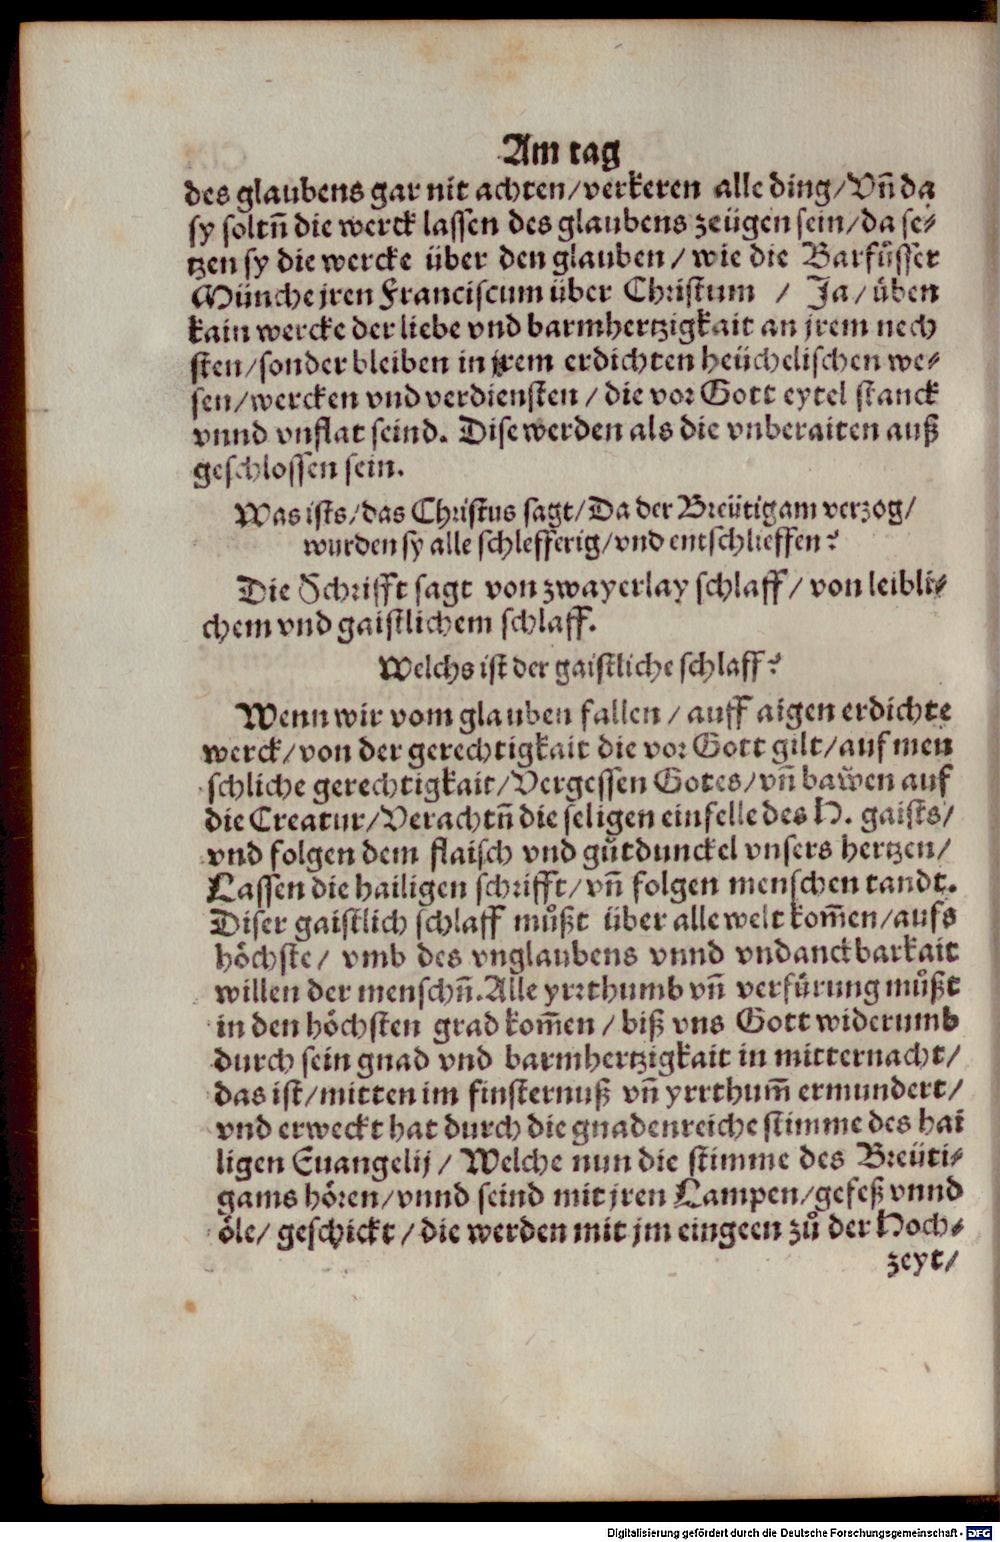 Am tag
des glaubens gar nit achten/verkeren alle ding/Vñ da
sy soltñ die werck lassen des glaubens zeügen sein/da se-
tzen sy die wercke über den glauben/wie die Barfůsser
Münche jren Franciscum über Christum / Ja/üben
kain wercke der liebe vnd barmhertzigkait an jrem nech
sten/sonder bleiben in jrem erdichten heüchelischen we-
sen/wercken vnd verdiensten/die vor Gott eytel stanck
vnnd vnflat seind. Dise werden als die vnberaiten auß
geschlossen sein.
Was ists/das Christus sagt/Da der Breütigam verzog/
wurden sy alle schlefferig/vnd entschlieffen?
Die Schrifft sagt von zwayerlay schlaff/von leibli-
chem vnd gaistlichem schlaff.
Welchs ist der gaistliche schlaff?
Wenn wir vom glauben fallen/auff aigen erdichte
werck/von der gerechtigkait die vor Gott gilt/auf men
schliche gerechtigkait/Vergessen Gotes/vñ bawen auf
die Creatur/Verachtñ die seligen einfelle des H. gaists/
vnd folgen dem flaisch vnd gůtdunckel vnsers hertzen/
Lassen die hailigen schrifft/vñ folgen menschen tandt.
Diser gaistlich schlaff můßt über alle welt kom̃en/aufs
höchste/ vmb des vnglaubens vnnd vndanckbarkait
willen der menschñ. Alle yrrthumb vñ verfürung můßt
in den höchsten grad kom̃en/biß vns Gott widerumb
durch sein gnad vnd barmhertzigkait in mitternacht/
das ist/mitten im finsternuß vñ yrrthum̃ ermundert/
vnd erweckt hat durch die gnadenreiche stimme des hai
ligen Euangelij/Welche nun die stimme des Breüti-
gams hören/vnnd seind mit jren Lampen/gefeß vnnd
öle/geschickt/die werden mit jm eingeen zů der Hoch-
zeyt/
Digitalisierung gefördert durch die Deutsche Forschungsgemeinschaft - DFG